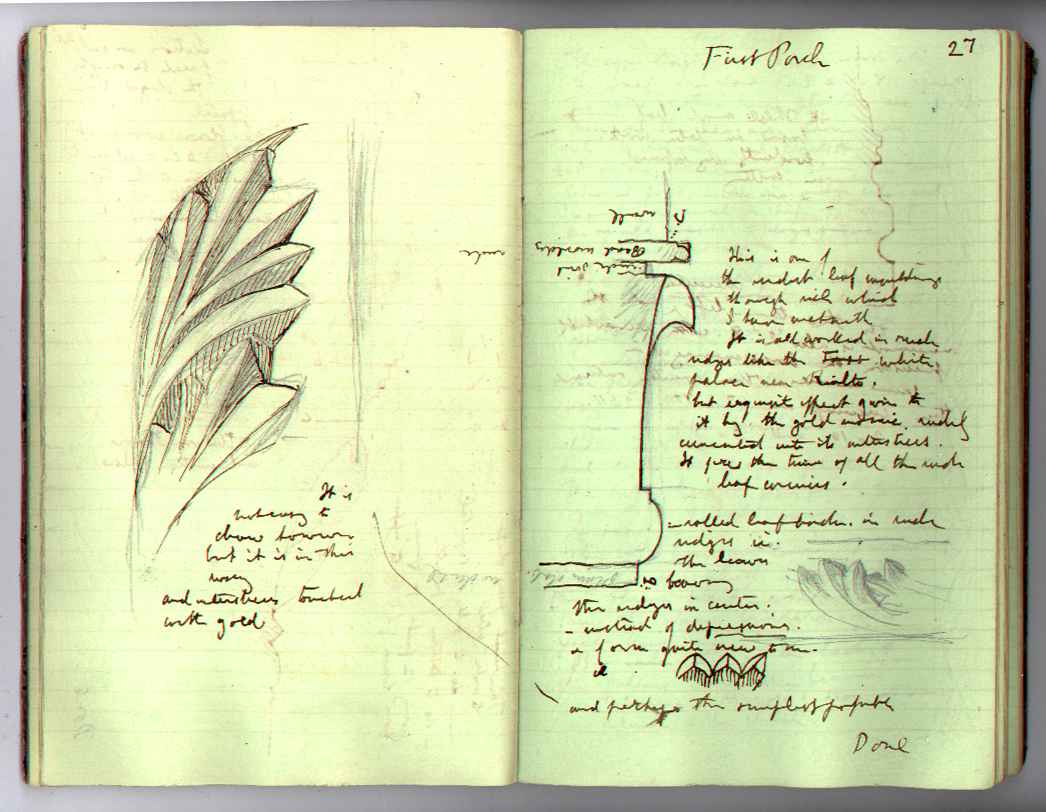 It is
not easy to
draw however
but it is in this
way
and interstices touched
with gold
27
First Porch
This is one of
the rudest leaf mouldings
though rich which
I have met with
It is all worked in rude
ridges like the white
palace near Rialto.
but exquisite effect given to
it by the gold mosaic, rudely
cemented into its interstices.
It gives the tone of all the rude
leaf cornices.
rolled leaf border. in rude
ridges ie.
the leaves
having
the ridges in center.
- instead of depressions.
a form quite new to me.
and perhaps the simplest possible
Done